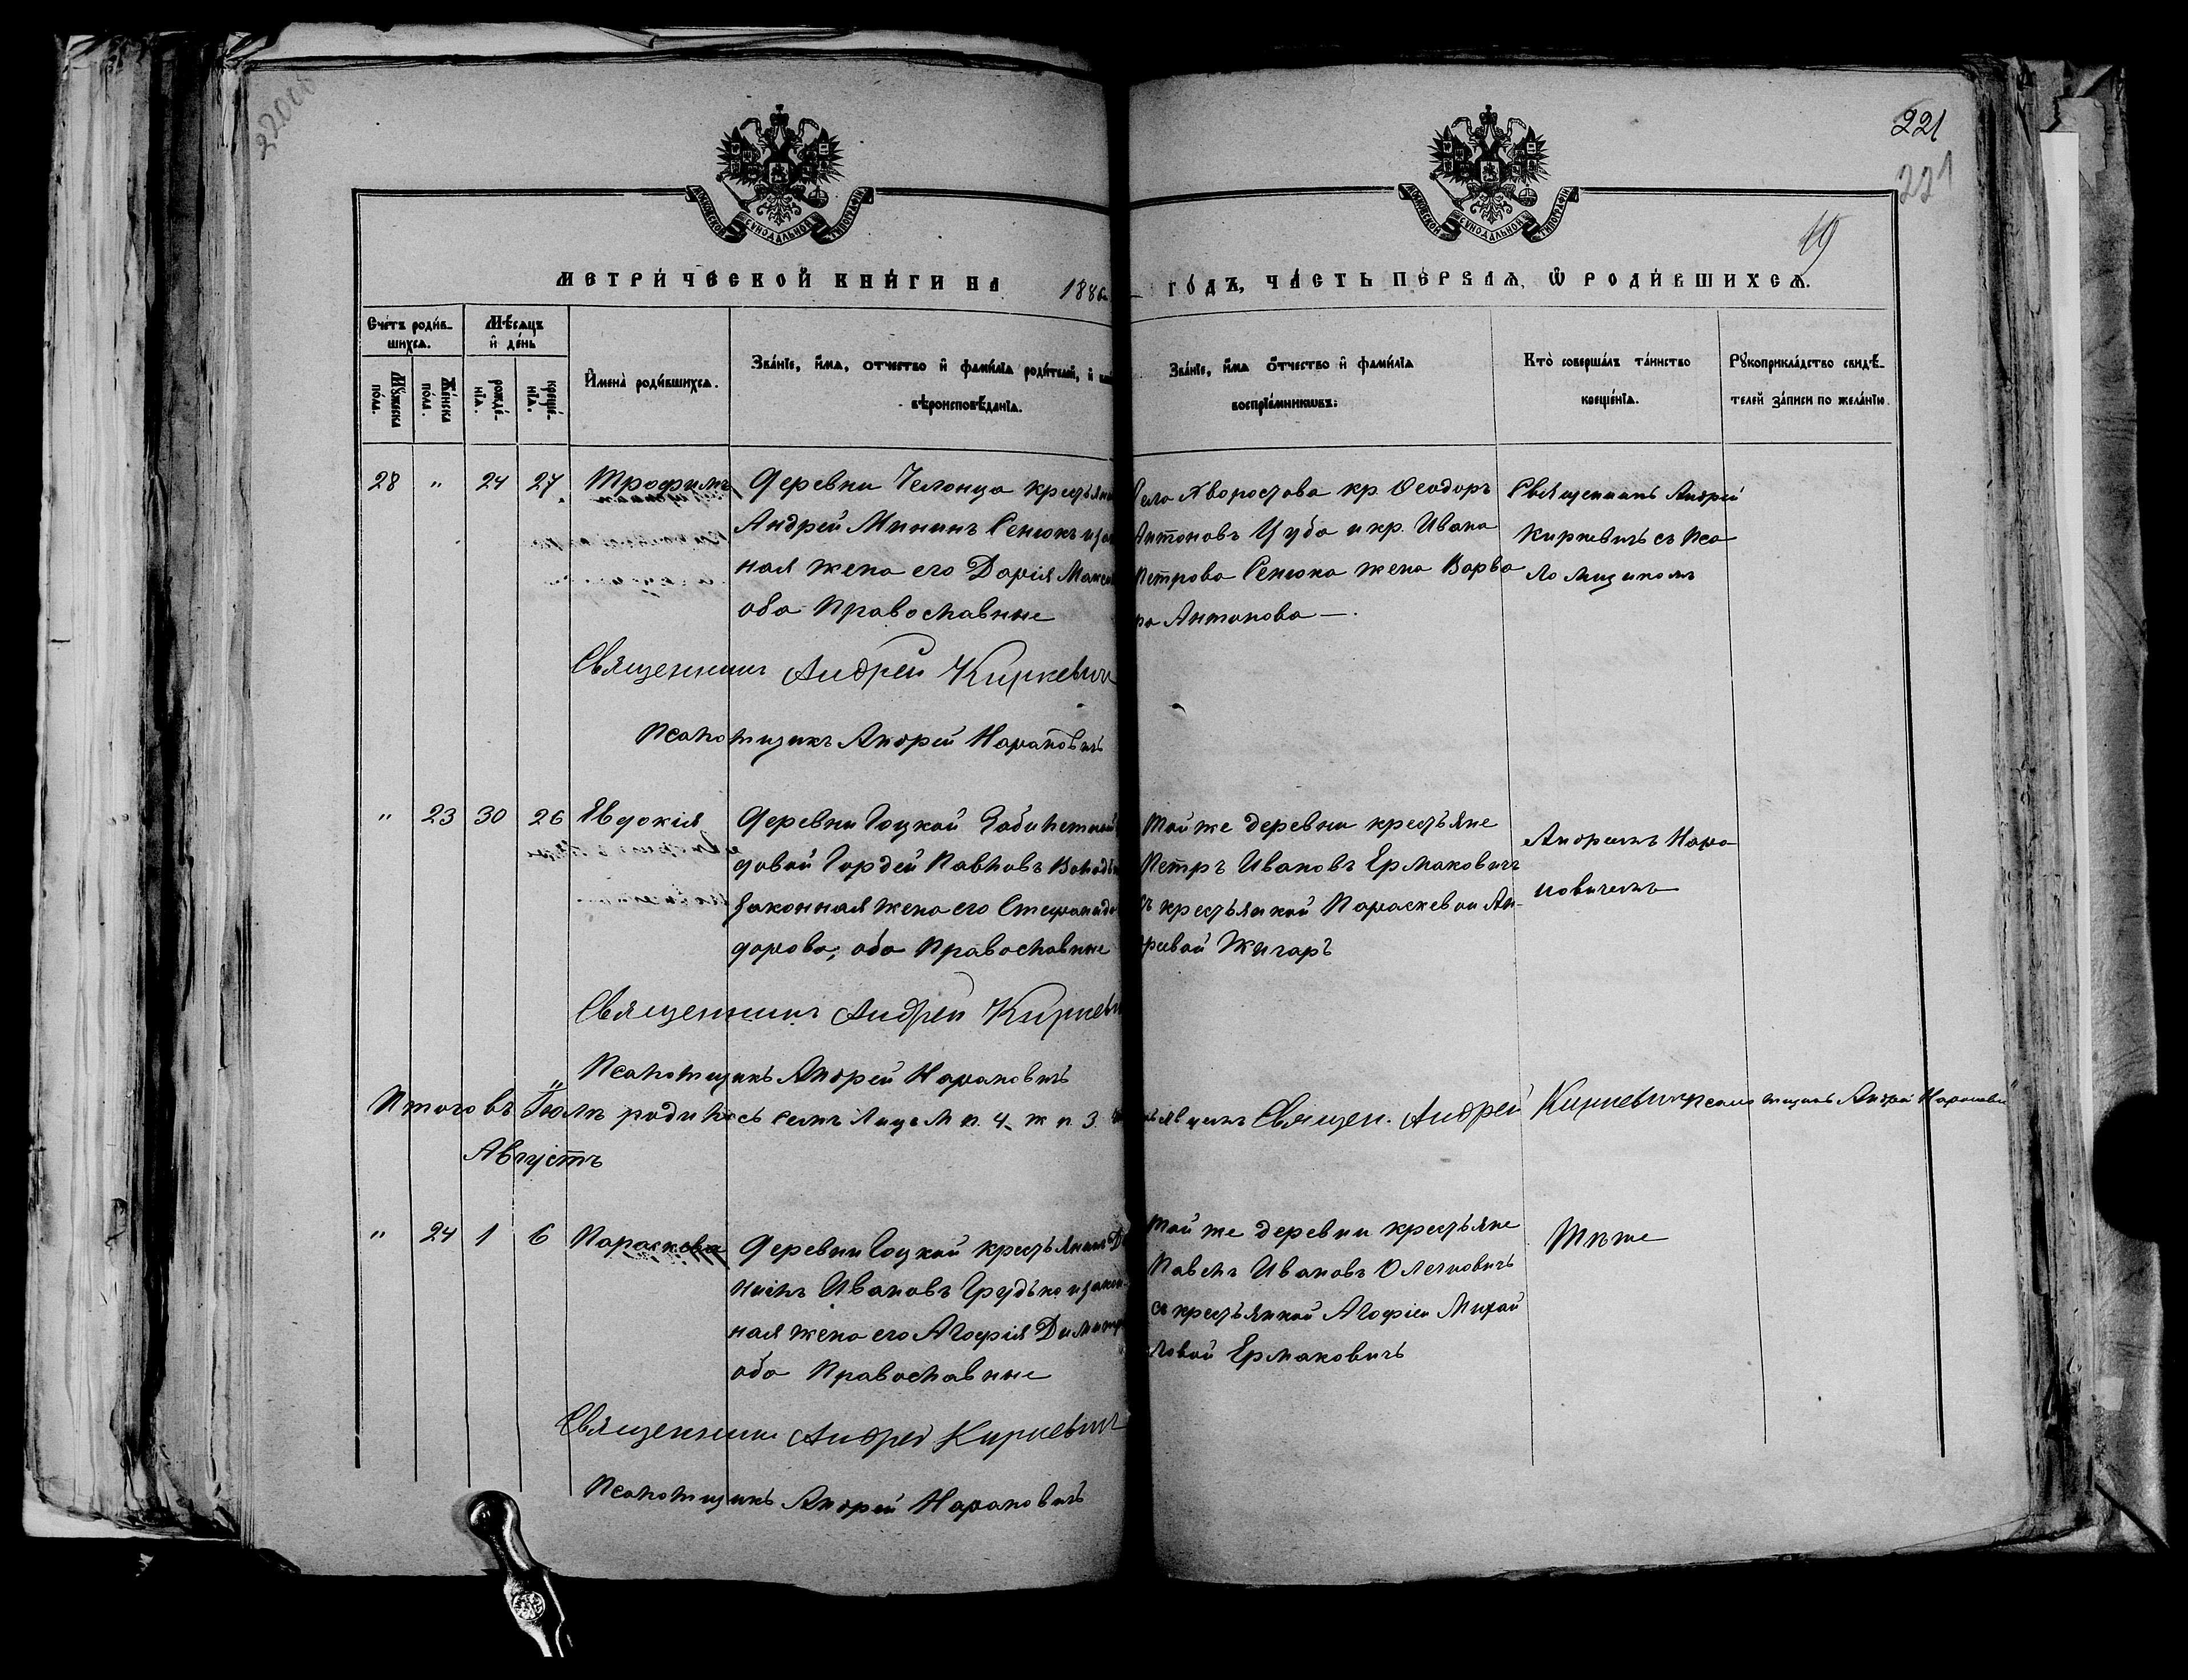 221
221
19
МОСКОВСКОЙ СѴНОДАЛЬНОЙ ТИПОГРАФІИ
МОСКОВСКОЙ СѴНОДАЛЬНОЙ ТИПОГРАФІИ
МЕТРИ́ЧЕСКОЙ КНИ́ГИ НА 1886 ГО́ДЪ, ЧА́СТЬ ПЕ́РВАЯ, Ѡ РОДИ́ВШИХСЯ.
Сче́тъ роди́в-
шихся.
Мѣ́сяцъ
и де́нь
Му́жеска по́ла.
Же́нска по́ла.
рожде́-нїя.
креще́-нїя.
Имена̀ роди́вшихся.
Зва́нїе, и́мя, о́тчество и фами́лїя роди́телей, и
вѣроисповѣ́данїя.
Зва́нїе, и́мя о́тчество и фами́лїя
воспрїе́мниковъ.
Кто̀ соверша́лъ та́инство
креще́нїя.
Рꙋкоприкла́дство свидѣ́-
телей за́писи по жела́нїю.
28 " 24 27 Трофимъ Деревни Челонца крестьянин
Андрей Мининъ Сенюкъ и закон
ная жена его Дарія Макси
оба Православные
Села Хворостова кр. Ѳеодоръ
Антоновъ Цуба и кр. Ивана
Петрова Сенюка жена Варва
ра Антонова —.
Священникъ Андрей
Киркевичъ съ Пса
ломщикомъ
Священникъ Андрей Киркевичъ
Псаломщикъ Андрей Нарановичъ
" 23 30 26 Евдокія Деревни Гоцкой
довой Гордей Павловъ
законная жена его Стефанида
дорова, оба Православные
Той же деревни крестьяне
Петръ Ивановъ Ермаковичъ
съ крестьянкой Параскевой Ан-
дреевой Жигаръ
Андреемъ Нара
новичемъ
Священникъ Андрей Киркевичъ
Псаломщикъ Андрей Нарановичъ
Итого въ Іюлѣ родилось семь лицъ м п. 4, ж п. 3. Священ. Андрей Киркевичъ Псаломщикъ Андрей Нарановичъ
Августъ
" 24 1 6 Параскева Деревни Гоцкой крестьянинъ Д
Ивановъ Грудько и закон-
ная жена его Агафія Димитр
оба Православные
Той же деревни крестьяне
Павелъ Ивановъ Олехновичъ
съ крестьянкой Агафіей Михай
ловой Ермаковичъ
Тѣ же
Священникъ Андрей Киркевичъ
Псаломщикъ Андрей Нарановичъ